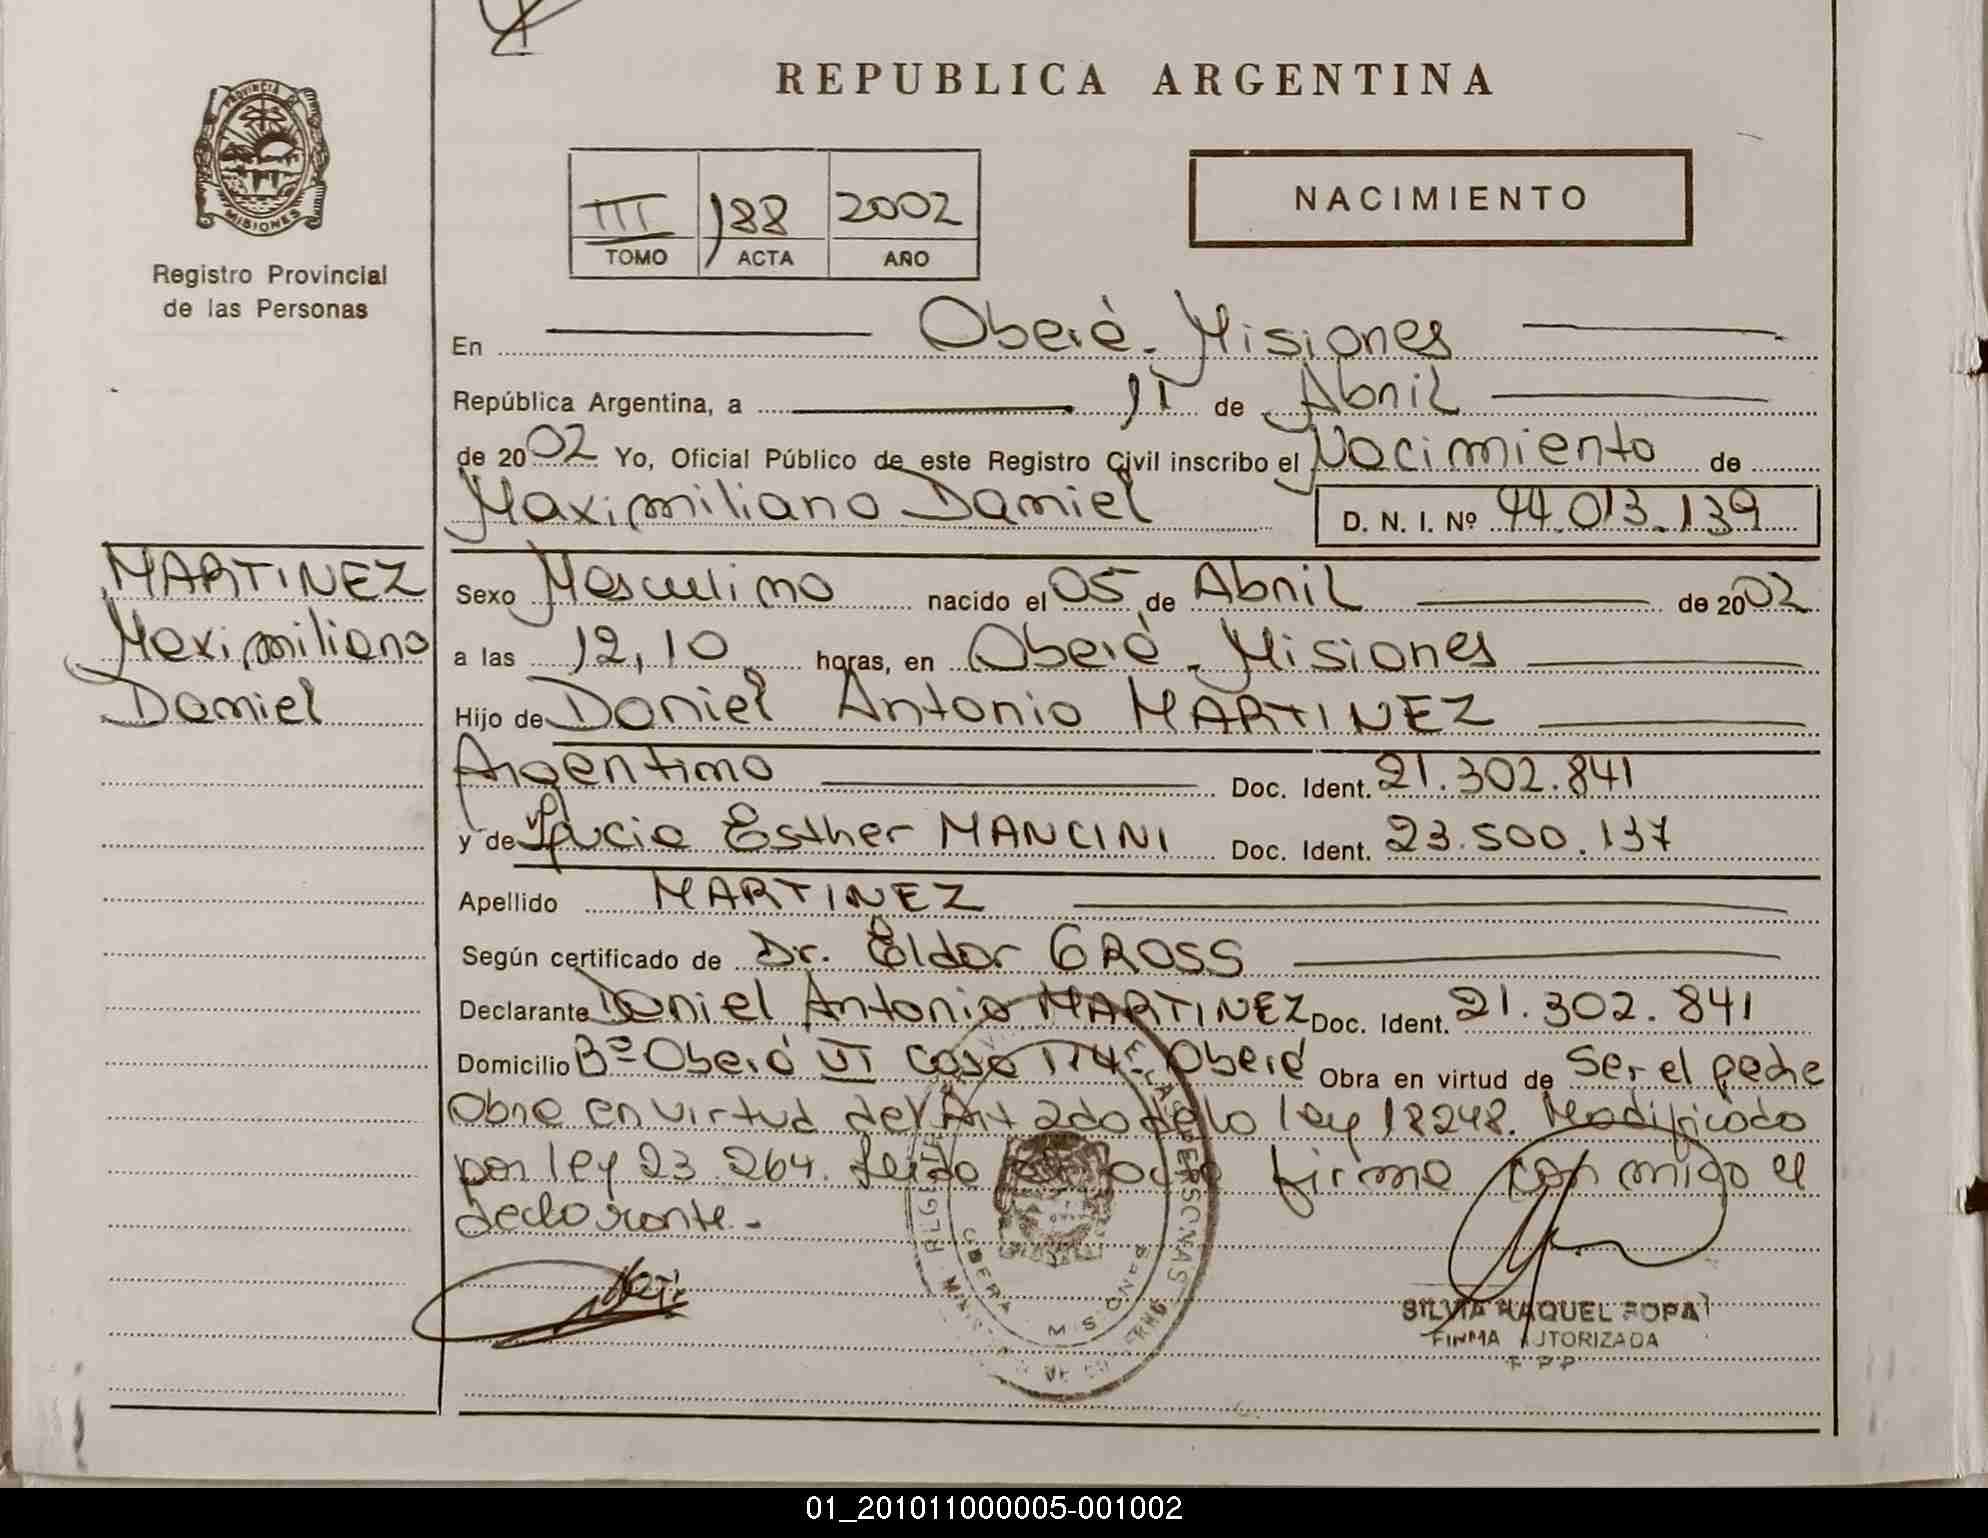 REPUBLICA ARGENTINA
PROVINCIA DE
MISIONES
Registro Provincial
de las Personas
III 188 2002
TOMO ACTA AÑO
NACIMIENTO
En Oberá. Misiones
República Argentina, a 11 de Abril
de 2002 Yo, Oficial Público de este Registro Civil inscribo el Nacimiento de
Maximiliano Daniel D. N. I. Nº 44.013.139
MARTINEZ
Maximiliano
Daniel
Sexo Masculino nacido el 05 de Abril de 2002
a las 12,10 horas, en Oberá. Misiones
Hijo de Daniel Antonio MARTINEZ
Argentino Doc. Ident. 21.302.841
y de Lucia Esther MANCINI Doc. Ident. 23.500.137
Apellido MARTINEZ
Según certificado de Dr. Eldor GROSS
Declarante Daniel Antonio MARTINEZ Doc. Ident. 21.302.841
Domicilio Bº Oberá VI Casa 114 - Oberá Obra en virtud de Ser el padre
Obra en virtud del Art 2do de la ley 18248. Modificado
por ley 23.264. Leido el firma conmigo el
declarante.-
SILVIA RAQUEL POPA
FIRMA AUTORIZADA
01_201011000005-001002